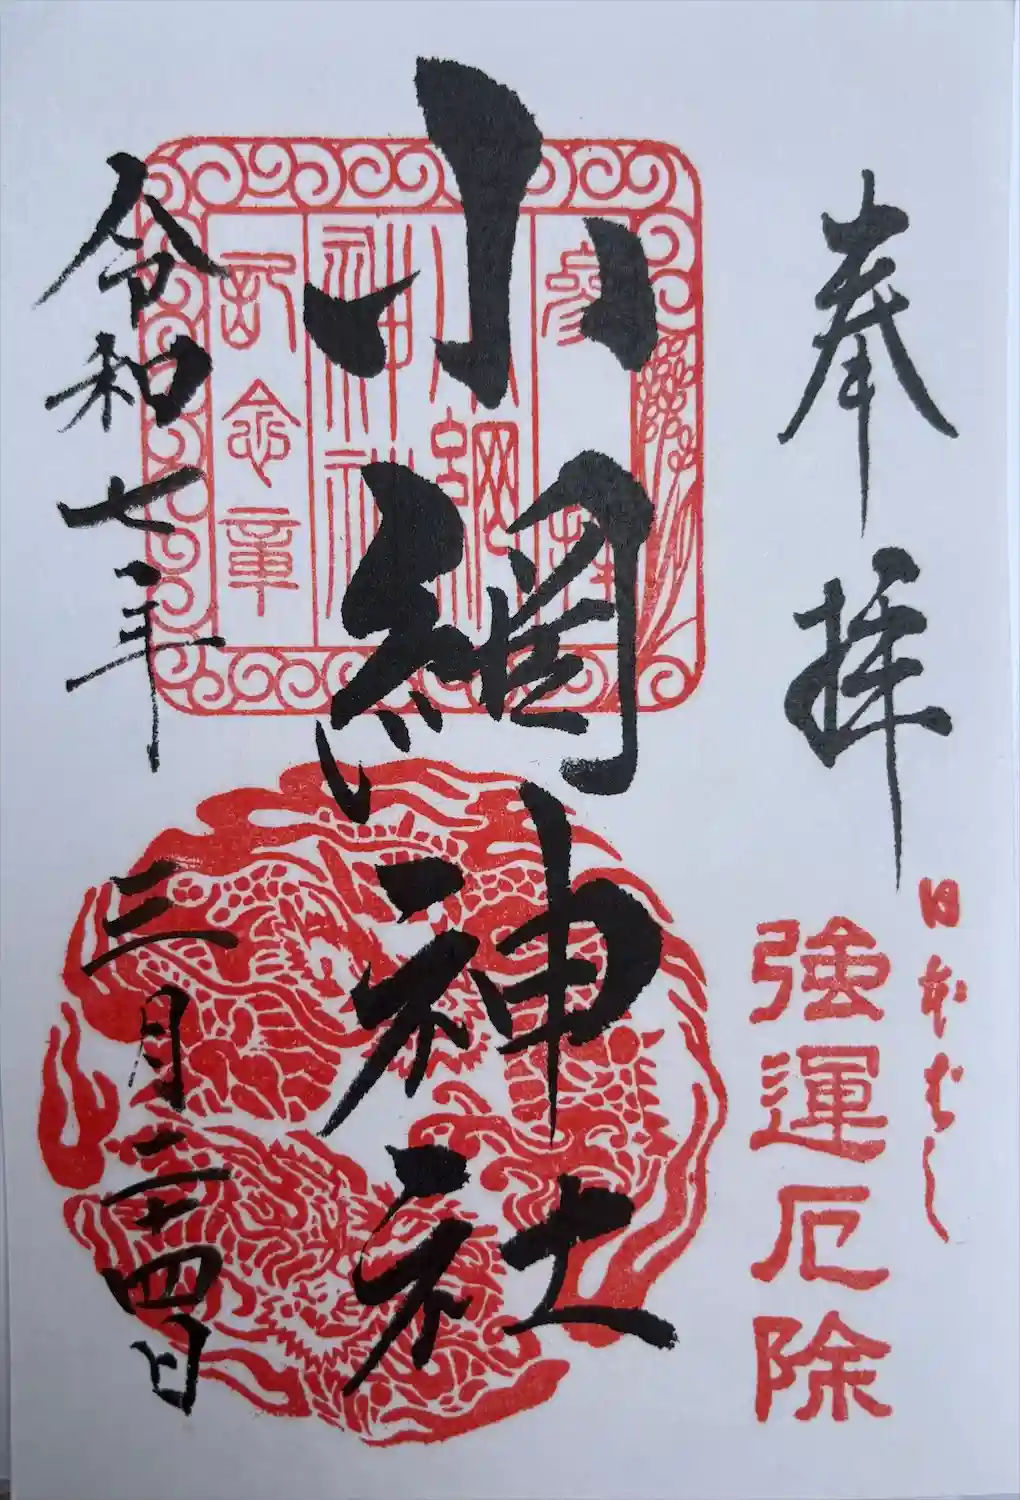 奉拝
日本ばし
強運厄除
小網神社
参拝
小網
神社
記念章
令和七年
三月二十四日